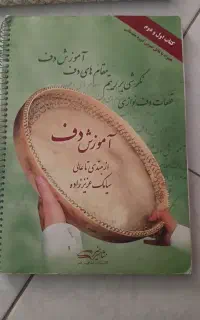 کتاب اول و دوم
آموزش دف
مقام های دف
نگرشی بر ریتم
قطعات دف نوازی
آموزش دف
از مبتدی تا عالی
سیامک عزیززاده